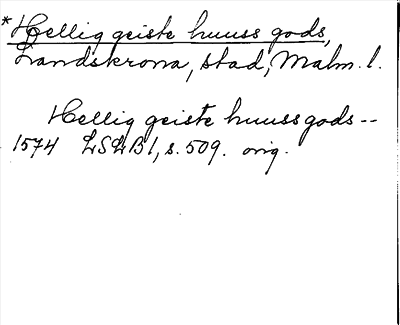 *Hellig geiste huuss gods,
Landskrona, stad, Malm. l.
Hellig geiste huuss gods--
1574 LSLB 1, s. 509. orig.